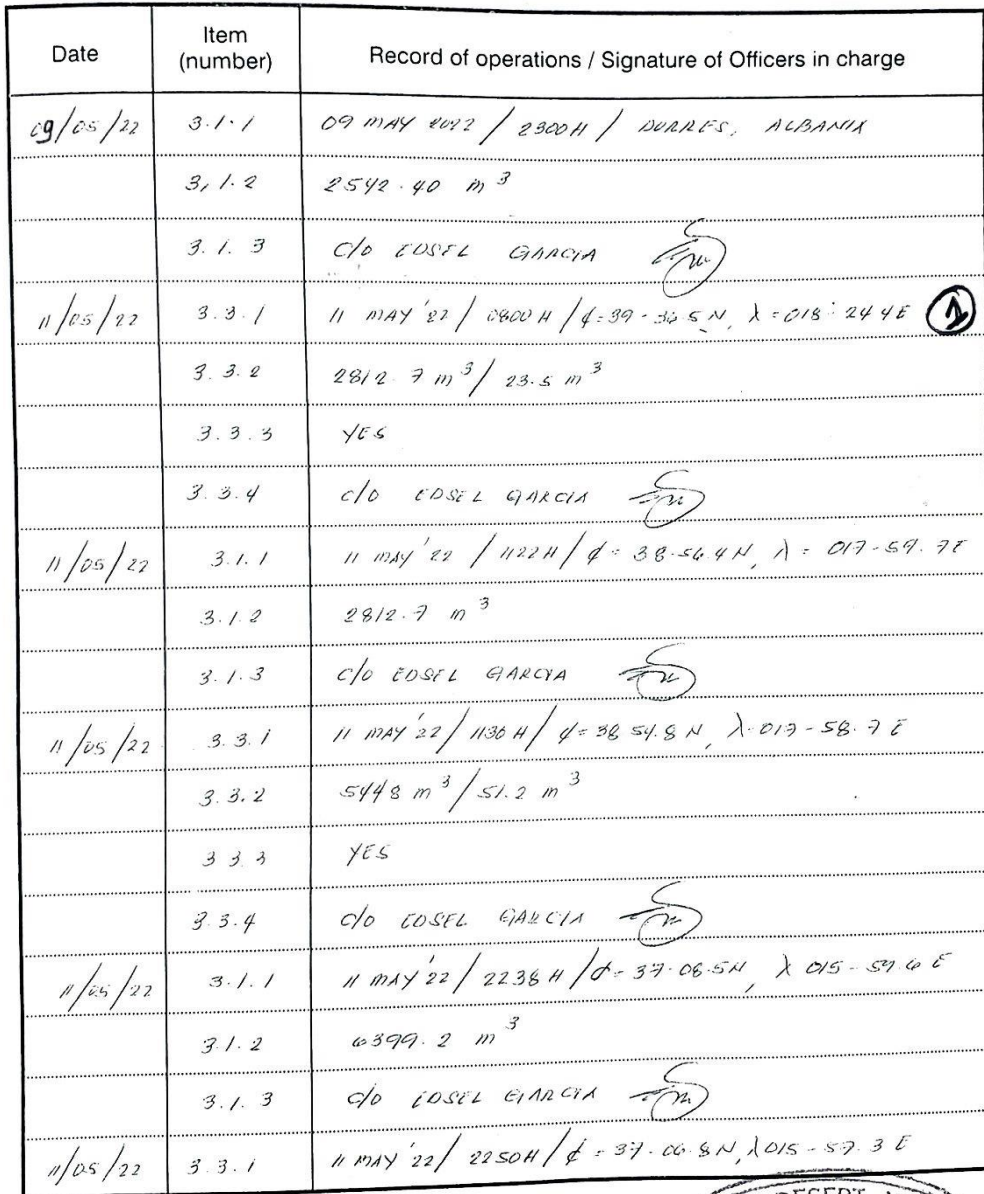 Date Item (number) Record of operations / Signature of Officers in charge
09/05/22 3.1.1 09 MAY 2022 / 2300H / DURRES, ALBANIA
3.1.2 2542.40 m³
3.1.3 C/O EDSEL GARCIA
11/05/22 3.3.1 11 MAY '22 / 0800H / ϕ=39-36.5 N, λ=018-24.4E 1
3.3.2 2812.7 m³ / 23.5 m³
3.3.3 YES
3.3.4 C/O EDSEL GARCIA
11/05/22 3.1.1 11 MAY '22 / 1122H / ϕ= 38-56.4N, λ = 017-59.7E
3.1.2 2812.7 m³
3.1.3 C/O EDSEL GARCIA
11/05/22 3.3.1 11 MAY '22 / 1130H / ϕ=38 54.8 N, λ-017-58.7 E
3.3.2 5448 m³ / 51.2 m³
3.3.3 YES
3.3.4 C/O EDSEL GARCIA
11/05/22 3.1.1 11 MAY '22 / 2238H / ϕ=37-08.5N, λ 015-59.6 E
3.1.2 6399.2 m³
3.1.3 C/O EDSEL GARCIA
11/05/22 3.3.1 11 MAY '22 / 2250H / ϕ=37-06.8N, λ015-57.3 E
DESERT